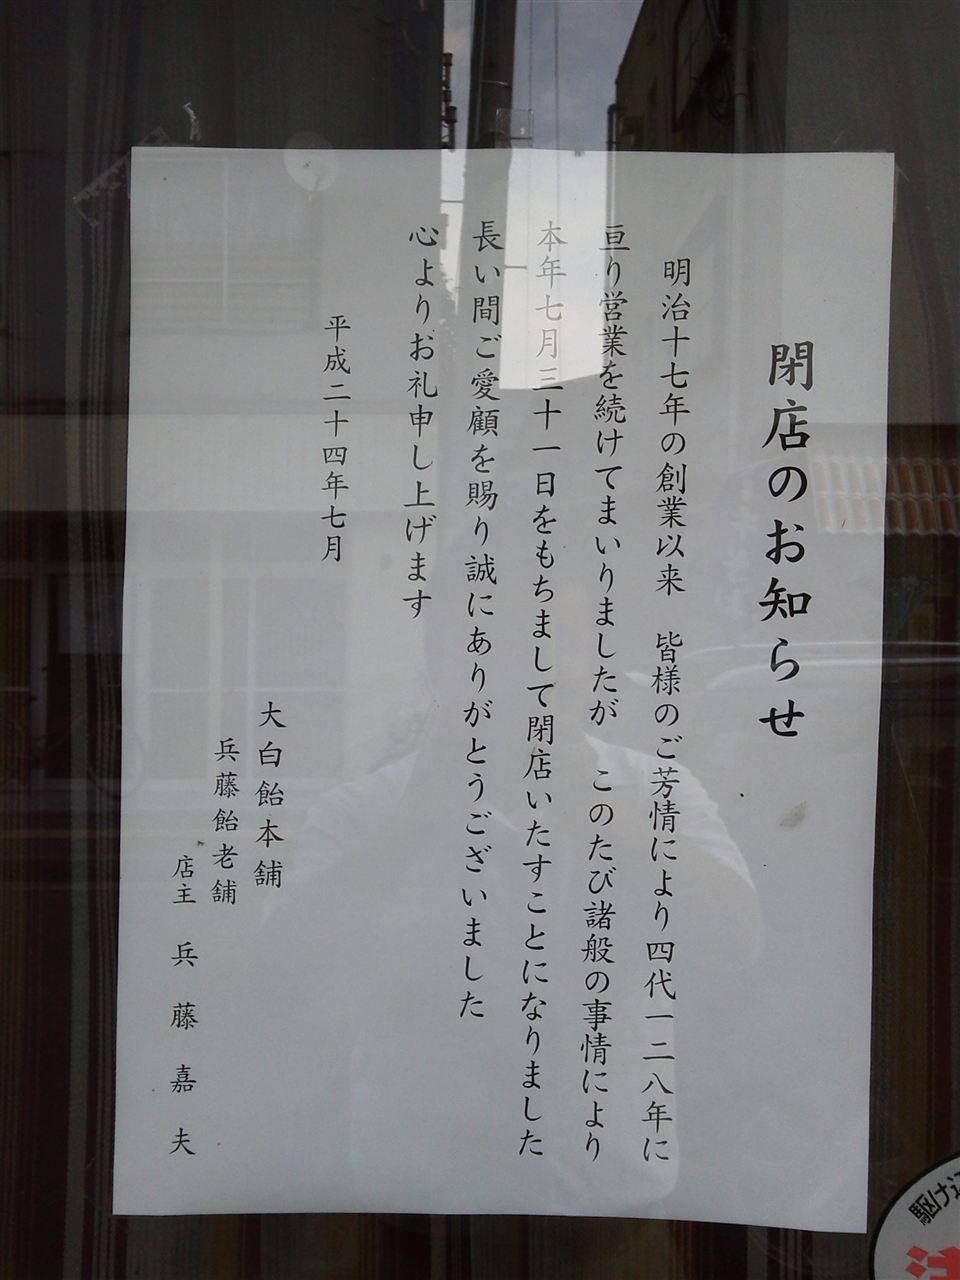 閉店のお知らせ
明治十七年の創業以来　皆様のご芳情により四代一二八年に
亘り営業を続けてまいりましたが　このたび諸般の事情により
本年七月三十一日をもちまして閉店いたすことになりました
長い間ご愛顧を賜り誠にありがとうございました
心よりお礼申し上げます
平成二十四年七月
大白飴本舗
兵藤飴老舗
店主　兵藤嘉夫
駆け込